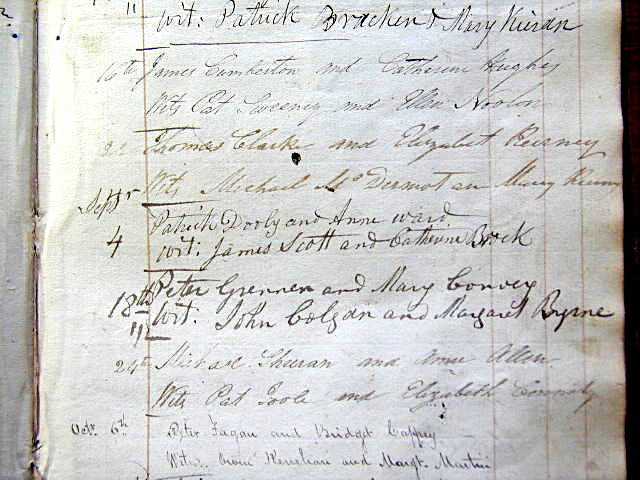 " Wit: Patrick Bracken & Mary Kieran
16th James Cumberton and Catherine Hughes
Wits Pat Sweeney and Ellen Noolon
22 Thomas Clarke and Elizabet Kearney
Wits Michael McDermot an Mary
Septr
4 Patrick Dooly and Anne ward
Wit: James Scott and Catherine Brock
18th Peter Grennen and Mary Convey
" Wit. John Colgan and Margaret Byrne
24th Michael Sheeran and Anne Allen
Wits Pat Toole and Elizabeth
Octr 6th Peter Fagan and Bridget Caffrey
Wits Owen Henehan and Margt. Martin